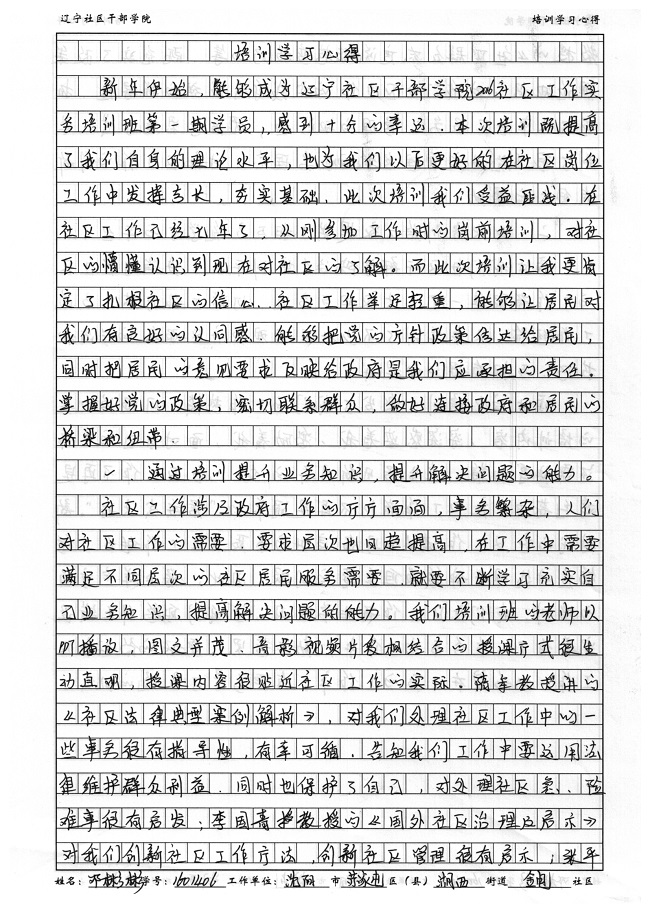 辽宁社区干部学院 培训学习心得
培训学习心得
新年伊始，能够成为辽宁社区干部学院2016社区工作实
务培训班第一期学员，感到十分的幸运。本次培训既提高
了我们自身的理论水平，也为我们以后更好的在社区岗位
工作中发挥专长，夯实基础。此次培训我们受益匪浅。在
社区工作已经七年了，从刚参加工作时的岗前培训，对社
区的懵懂认识到现在对社区的了解。而此次培训让我更坚
定了扎根社区的信心。社区工作举足轻重，能够让居民对
我们有良好的认同感。能够把党的方针政策传达给居民，
同时把居民的意见要求反映给政府是我们应承担的责任。
掌握好党的政策，密切联系群众，做好连接政府和居民的
桥梁和纽带．
一、通过培训提升业务知识，提升解决问题的能力。
社区工作涉及政府工作的方方面面，事务繁杂，人们
对社区工作的需要．要求层次也日趋提高，在工作中需要
满足不同层次的社区居民服务需要．就要不断学习充实自
己业务知识，提高解决问题的能力。我们培训班的老师以
PPT播放，图文并茂．音影视频片段相结合的授课方式很生
动直观，授课内容很贴近社区工作的实际．隋 教授讲的
《社区法律典型案例解析》，对我们处理社区工作中的一
些事务很有指导性，有章可循．告知我们工作中要运用法
律维护群众利益．同时也保护了自己，对处理社区急、险
难事很有启发；李国青教授授的《国外社区治理及启示》
对我们创新社区工作方法，创新社区管理很有启示；张平
姓名： 林 学号：1601406 工作单位：沈阳 市 苏家屯 区（县） 湖西 街道 社区